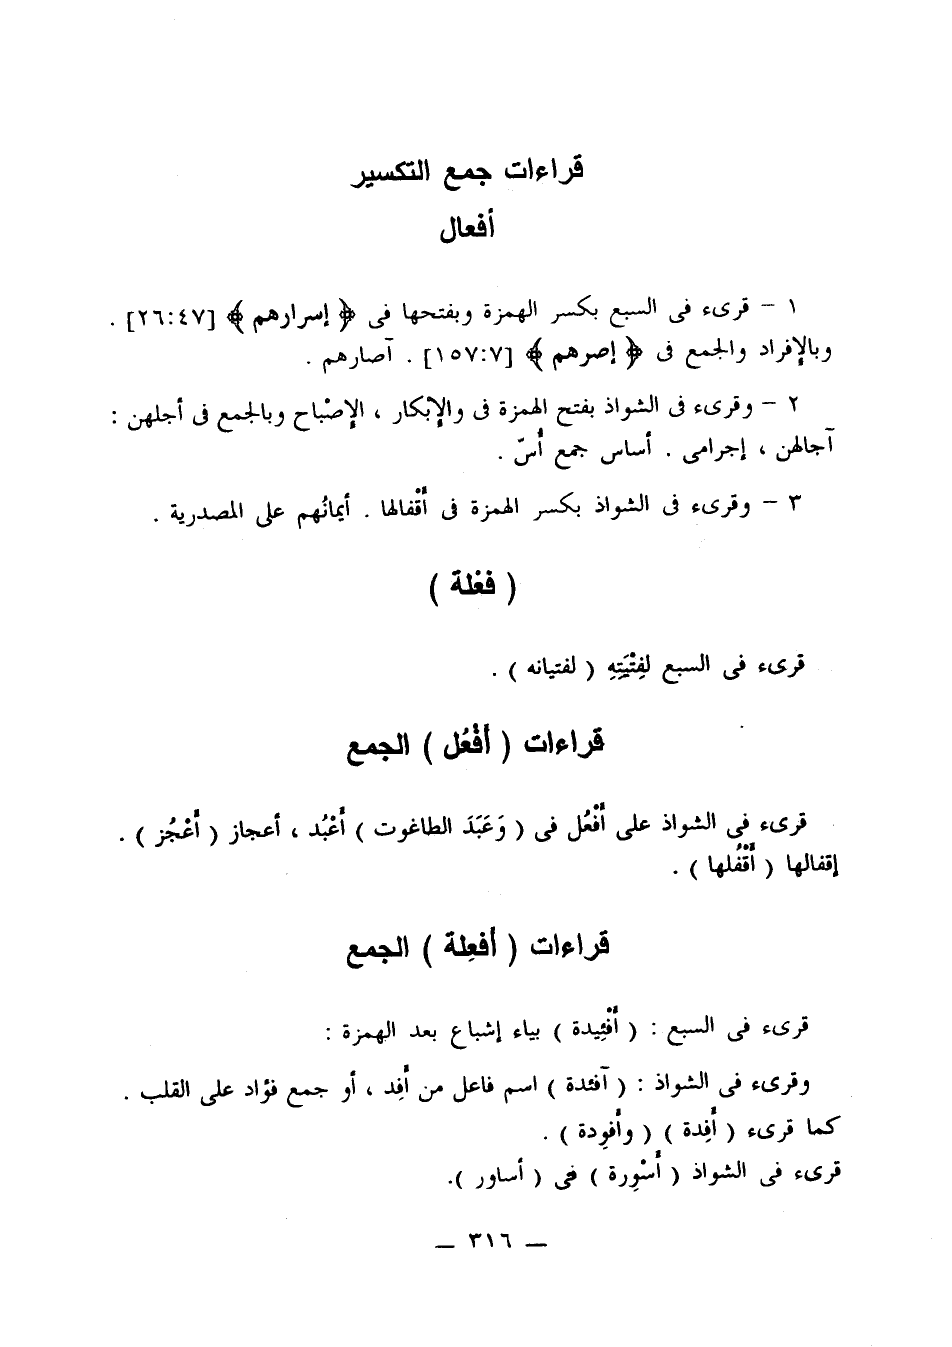 قراءات جمع التكسير
أفعال
١ – قرىء فى السبع بكسر الهمزة وبفتحها فى ﴿ إسرارهم ﴾ [٢٦:٤٧] .
وبالإفراد والجمع فى ﴿ إصرهم ﴾ [١٥٧:٧] . آصارهم .
٢ – وقرىء فى الشواذ بفتح الهمزة فى والإبكار ، الإصْباح وبالجمع فى أجلهن :
آجالهن ، إجرامى . أساس جمع أُسّ .
٣ – وقرىء فى الشواذ بكسر الهمزة فى أَقْفالها . أيمانُهم على المصدرية .
( فعْلة )
قرىء فى السبع لفِتْيَتِهِ ( لفتيانه ) .
قراءات ( أَفْعُل ) الجمع
قرىء فى الشواذ على أَفْعُل فى ( وَعَبَدَ الطاغوت ) أَعْبُد ، أعجاز ( أَعْجُز ) .
إقفالها ( أَقْفُلها ) .
قراءات ( أفعِلة ) الجمع
قرىء فى السبع : ( أَفْئِيدة ) بياء إشباع بعد الهمزة :
وقرىء فى الشواذ : ( آفئدة ) اسم فاعل من أَفِد ، أو جمع فؤاد على القلب .
كما قرىء ( أَفِدة ) ( وأَفوِدة ) .
قرىء فى الشواذ ( أَسْوِرة ) فى ( أساور ).
— ٣١٦ —